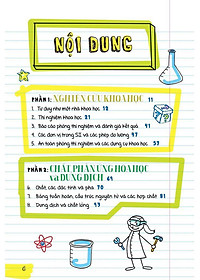 NỘI DUNG
PHẦN 1: NGHIÊN CỨU KHOA HỌC 11
1. Tư duy như một nhà khoa học 12
2. Thí nghiệm khoa học 21
3. Báo cáo phòng thí nghiệm và đánh giá kết quả 41
4. Các đơn vị trong SI và các phép đo lường 47
5. An toàn phòng thí nghiệm và các dụng cụ khoa học 53
PHẦN 2: CHẤT, PHẢN ỨNG HOÁ HỌC
và DUNG DỊCH 69
6. Chất, các đặc tính và pha 70
7. Bảng tuần hoàn, cấu trúc nguyên tử và các hợp chất 81
8. Dung dịch và chất lỏng 93
6